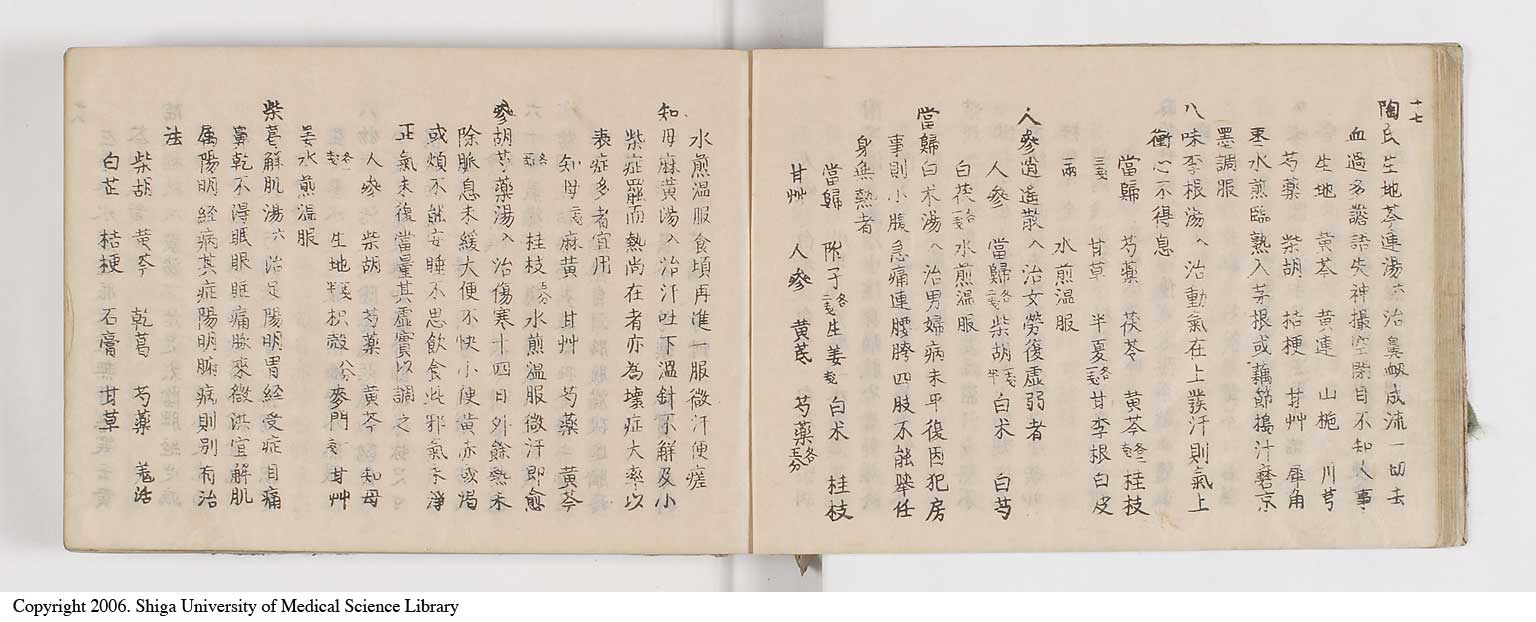 十七
陶氏生地芩連湯 治鼻衂成流一切去
血過多譫語失神撮空閉目不知人事
生地 黄芩 黄連 山梔 川芎
芍薬 柴胡 桔梗 甘艸 犀角
棗水煎臨熟入茅根或藕節搗汁磨京
墨調服
八味李根湯 治動氣在上發汗則氣上
衝心不得息
當歸 芍薬 茯苓 黄芩 桂枝
甘草 半夏 甘李根白皮
水煎温服
人參逍遙散 治女勞復虚弱者
人參 當歸 柴胡 白术 白芍
白茯 水煎温服
當歸白术湯 治男婦病未平復因犯房
事則小腹急痛連腰胯四肢不能舉任
身無熱者
當歸 附子 生姜 白术 桂枝
甘艸 人參 黄芪 芍薬
水煎温服食頃再進一服微汗便瘥
知母麻黄湯 治汗吐下温針不解及小
柴症罷而熱尚在者亦為壊症大率以
表症多者宜用
知母 麻黄 甘艸 芍薬 黄芩
桂枝 水煎温服微汗即愈
參胡芍薬湯 治傷寒十四日外餘熱未
除脈息未緩大便不快小便黄赤或渇
或煩不能安睡不思飲食此邪氣未淨
正氣未復當量其虚實以調之
人參 柴胡 芍薬 黄芩 知母
生地 枳殻 麥門 甘艸
姜水煎温服
柴葛解肌湯 治足陽明胃経受症目痛
鼻乾不得眠眼眶痛脈來微洪宜解肌
属陽明経病其症陽明腑病則別有治
法
柴胡 黄芩 乾葛 芍薬 羗活
白芷 桔梗 石膏 甘草
Copyright 2006. Shiga University of Medical Science Library